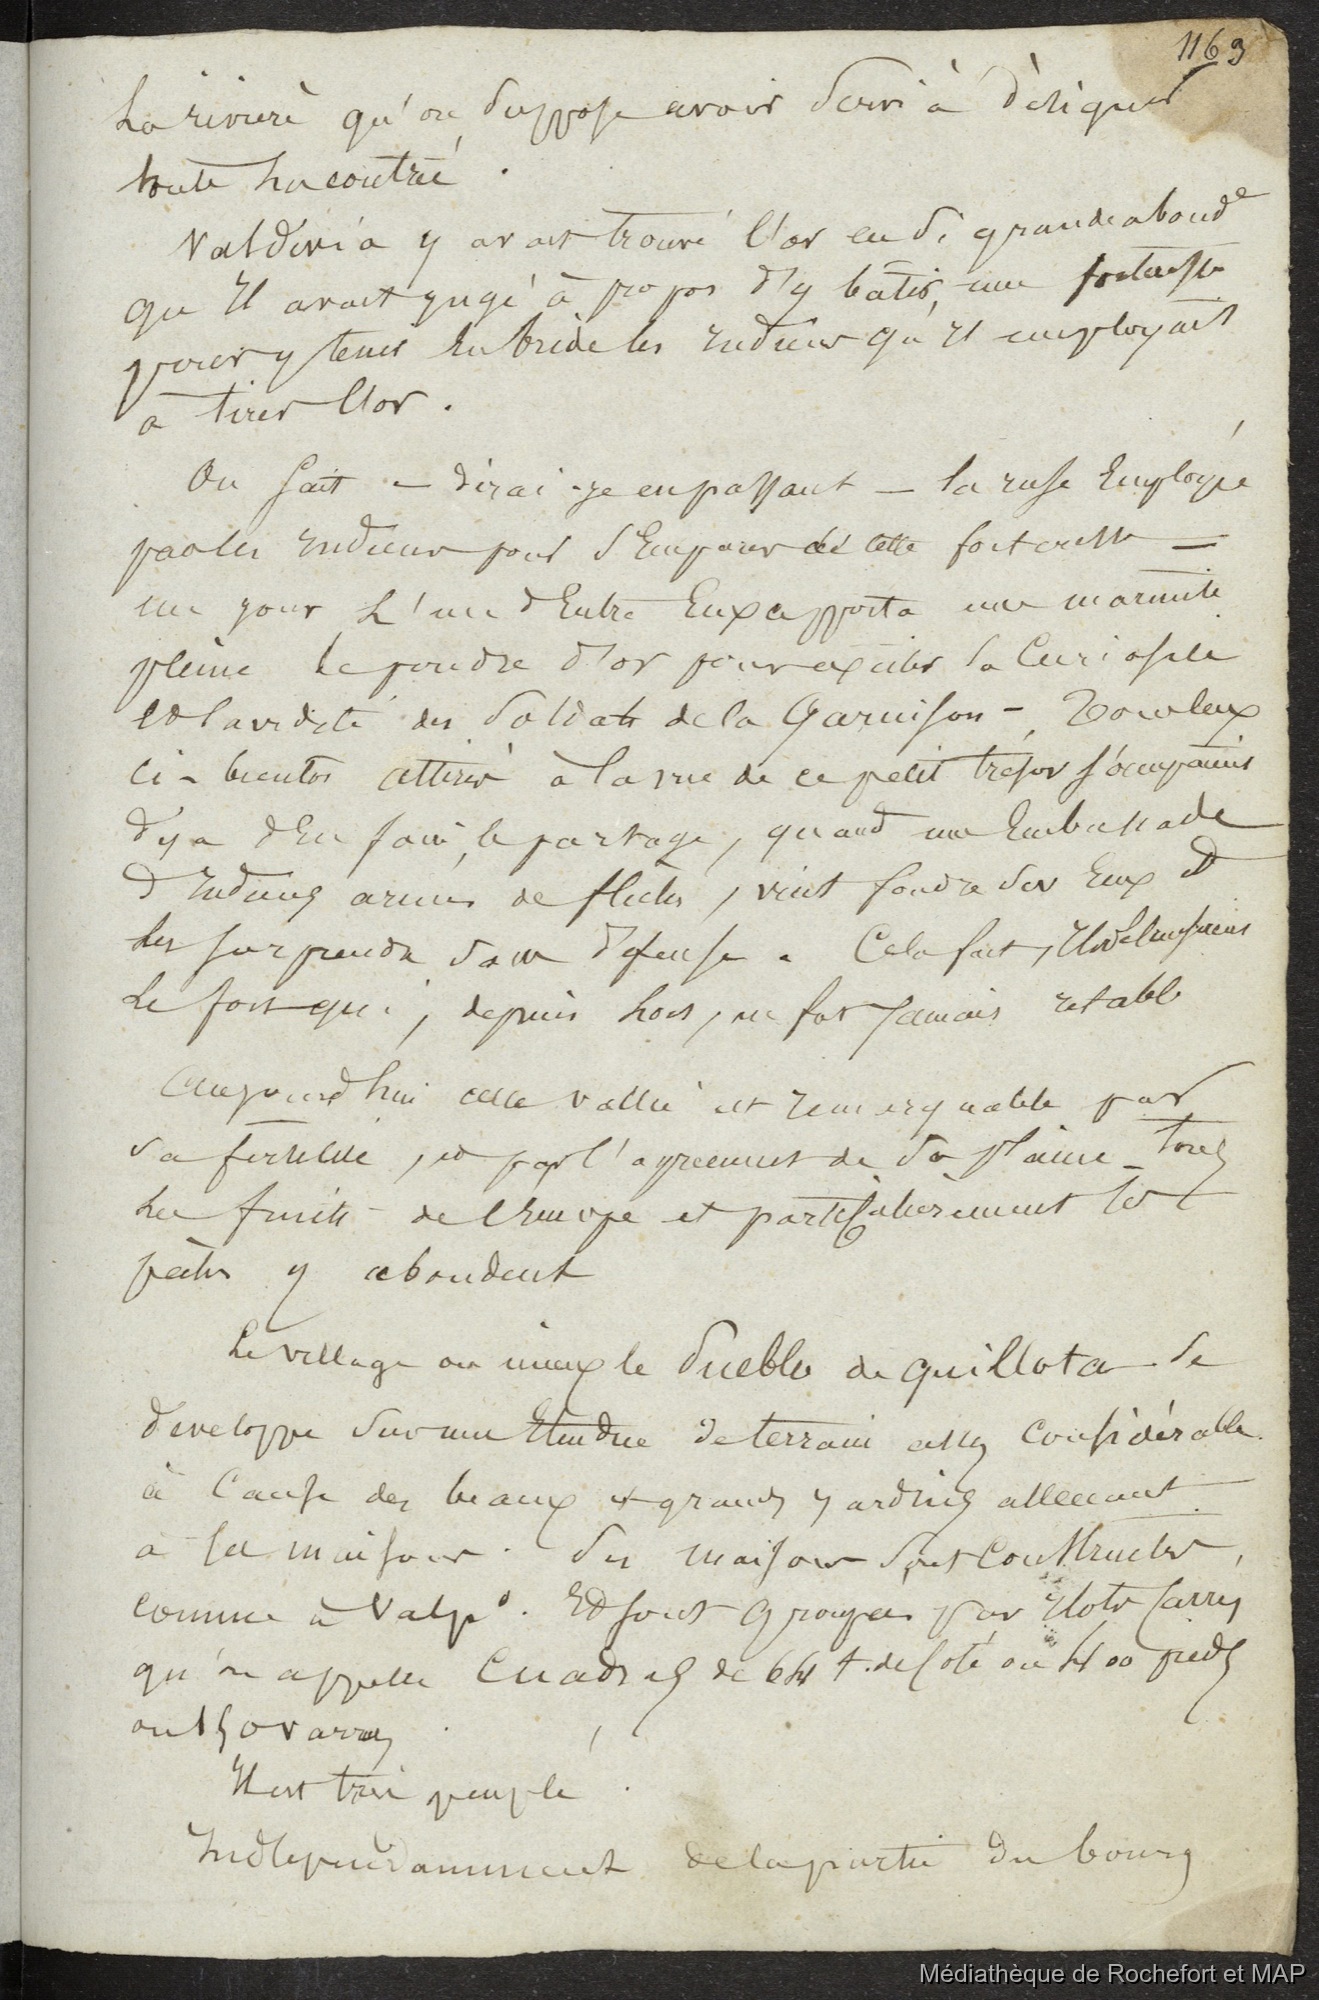 1169
La rivière qu'on suppose avoir servi à désigner
toute la contrée.
Valdivia y avait trouvé l'or en si grande abond^e
qu'il avait jugé à propos d'y bâtir, une forteresse
pour y tenir en bride les indiens qu'il employait
à tirer l'or.
On sait – dirai-je en passant – la ruse Employée
par les indiens pour s'Emparer de cette forteresse –
un jour L'un d'Entre Eux apporta une marmite
pleine de poudre d'or pour exciter la Curiosité
et l'avidité des soldats de la Garnison –
ci – bientôt attirés à la vue de ce petit trésor s'occupaient
d'En faire le partage, quand une Embuscade
d'Indiens armés de flèches, vint fondre sur Eux et
les surprendre sans défense. Cela fait,
Le fort qui, depuis lors, ne fut Jamais rétabli
Aujourd'hui cette vallée est remarquable par
sa fertilité, et par l'agrément de sa plaine – Tous
les fruits de l'Europe et particulièrement les
pêches y abondent
Le village ou mieux le Pueblo de Quillota se
développe sur une Etendue de terrain assez Considérable.
à Cause des beaux et grands jardins attenant
à sa maisons. Ses maisons sont Construites,
comme à Valp^o. Et sont Groupées par Ilots Carrés
qu'on appelle Cuadras de 64 t. de Coté ou 400 pieds
ou 150 varas
Il est très peuplé.
Indépendamment de la partie du bourg
Médiathèque de Rochefort et MAP